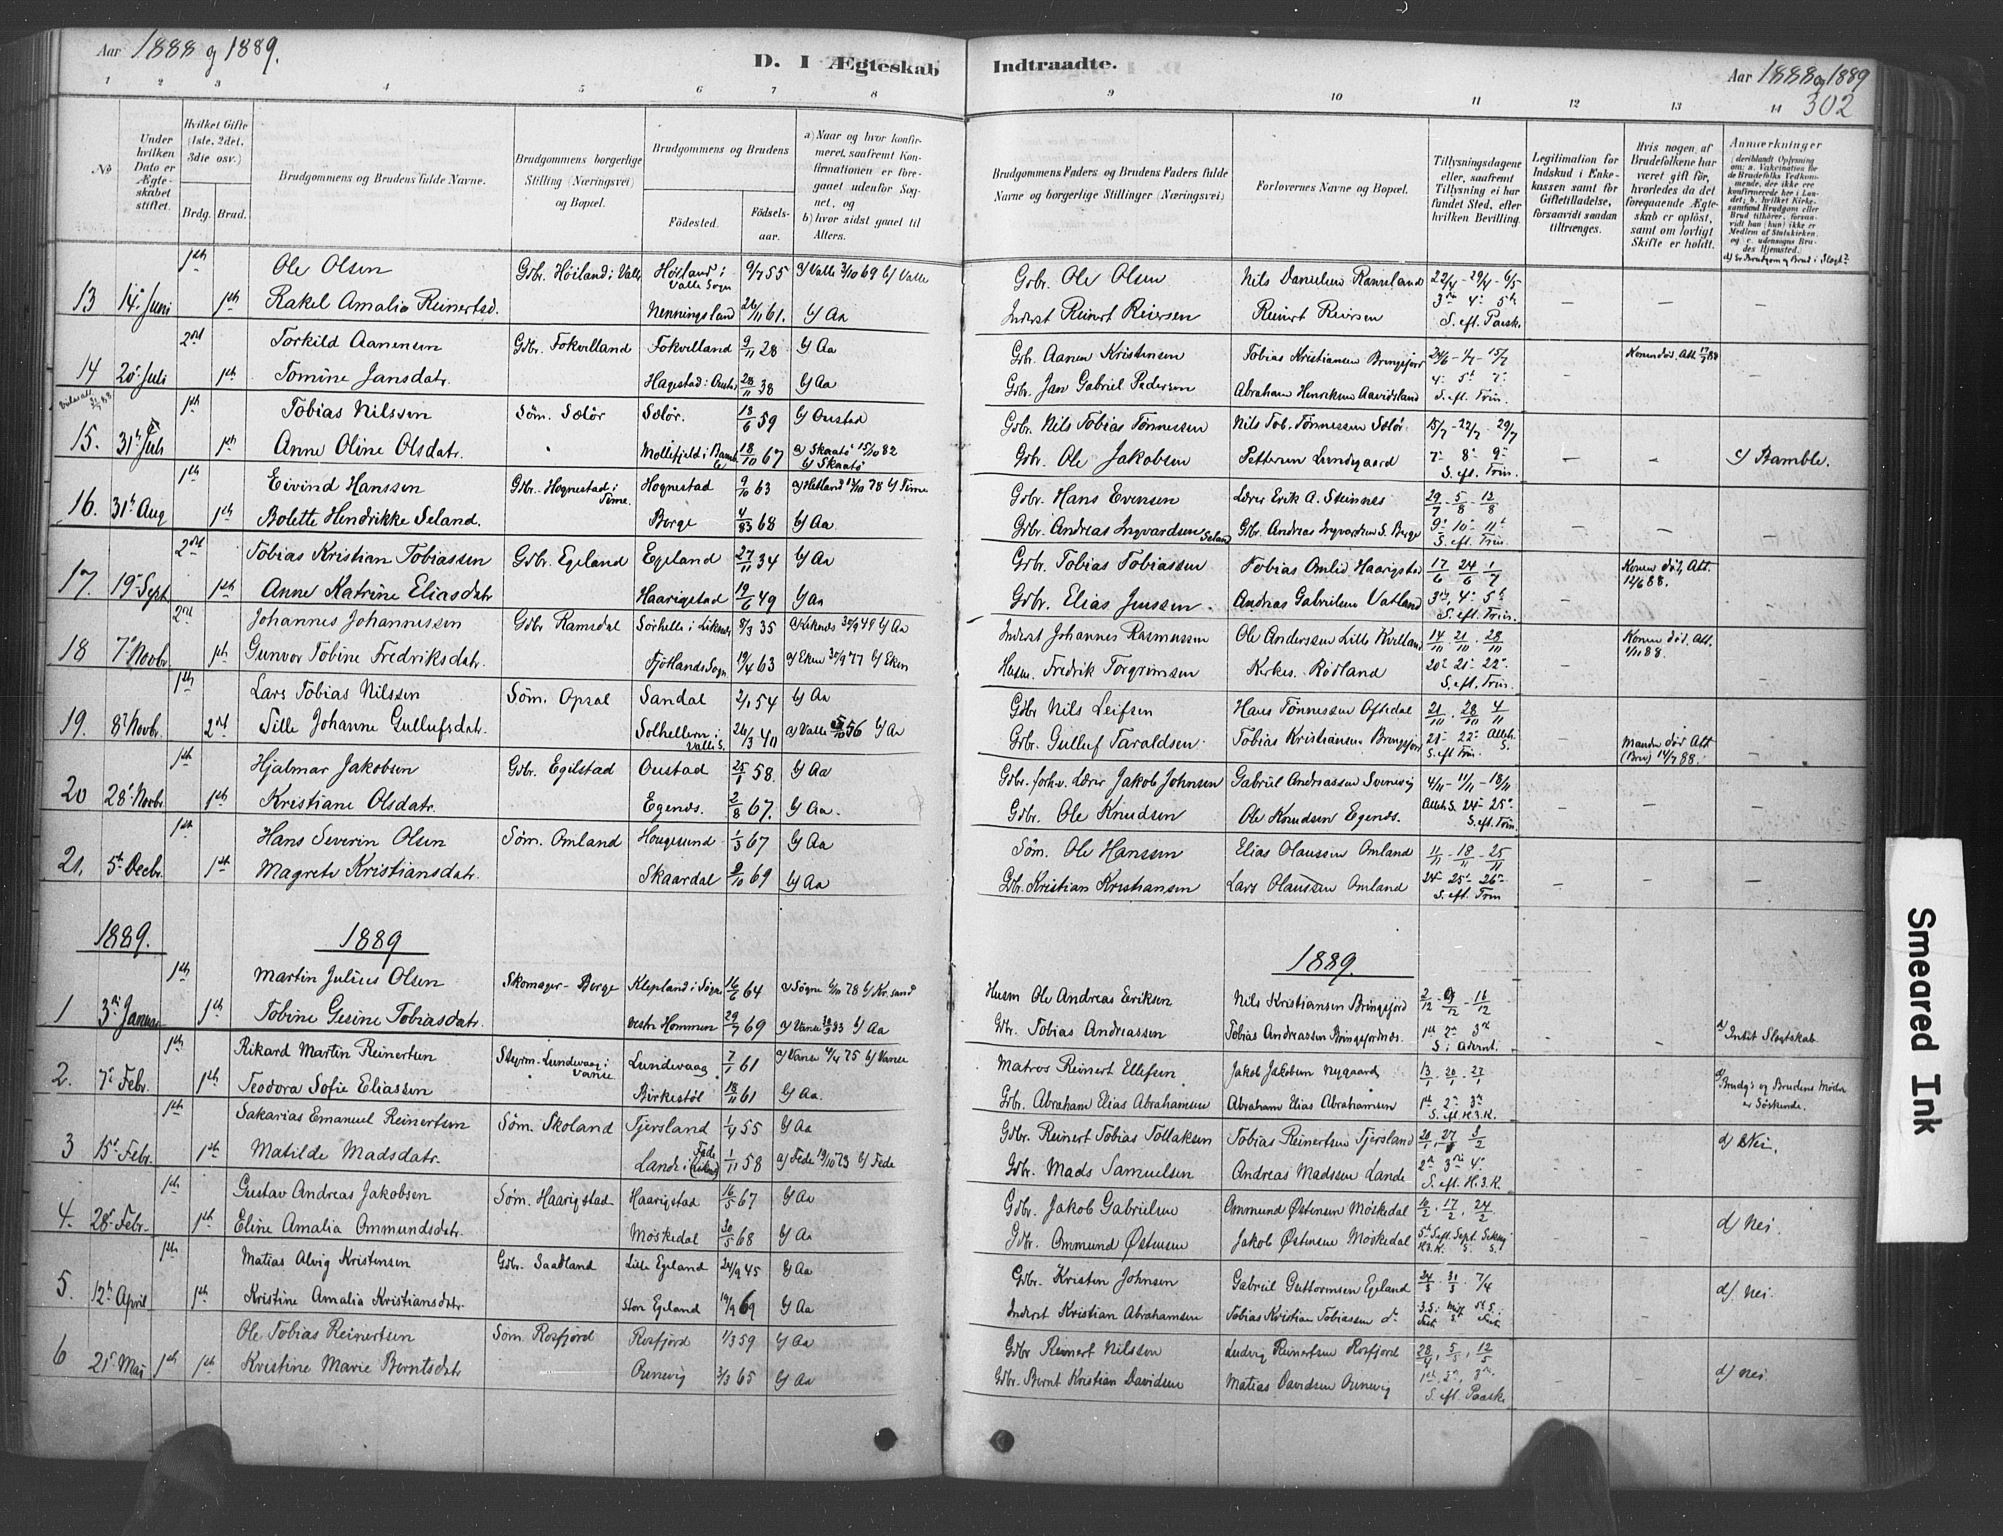 Aar 1888 og 1889.
D. I Ægteskab Indtraadte.
Aar 1888 og 1889
302
1 2 3 4 5 6 7 8 9 10 11 12 13 14
No
Under hvilken Dato er Ægteskabet stiftet.
Hvilket Gifte (1ste, 2det, 3die osv.)
Brdg. Brud.
Brudgommens og Brudens fulde Navne.
Brudgommens borgerlige Stilling (Næringsvei) og Bopæl.
Brudgommens og Brudens
Fødested. Fødselsaar.
a) Naar og hvor konfirmeret, saafremt Konfirmationen er foregaaet udenfor Sognet, og
b) hvor sidst gaaet til Alters.
Brudgommens Faders og Brudens Faders fulde Navne og borgerlige Stillinger (Næringsvei)
Forlovernes Navne og Bopæl.
Tillysningsdagene eller, saafremt Tillysning ei har fundet Sted, efter hvilken Bevilling.
Legitimation for Indskud i Enkekassen samt for Giftetilladelse, forsaavidt saadan tiltrænges.
Hvis nogen af Brudefolkene har været gift før, hvorledes da det foregaaende Ægteskab er opløst, samt om lovligt Skifte er holdt.
Anmærkninger
1ste Ole Olsen Gdbr. Høiland i Valle Høiland i Valle Sogn 9/7 55 a/ Valle 3/10 69 b/ Valle Gdbr. Ole Olsen Nils Danielsen Ramsland 22/4 - 29/4 - 6/5
13 14de Juni 1ste Rakel Amalia Reinertsd. Nenningsland 26/11 61. b/ Aa Inderst Reinert Reiersen Reinert Reiersen 3die 4de 5te S. eft. Paaske
2det Torkild Aanensen Gdbr. Fokvilland Fokvilland 9/11 28 b/ Aa Gdbr. Aanen Kristensen Tobias Kristiansen Bringsfjord 24/6 - 1/7 - 15/7 Konen død. Att. 17/7 88
14 20de Juli 1ste Tomine Jansdatr. 28/11 38 b/ Aa Gdbr. Jan Gabriel Pedersen Abraham Henriksen Aavidsland 4de 5te 7de S. eft. Trin.
1ste Tobias Nilssen Søm. Sælør Sælør. 13/6 59 b/ Oustad Gdbr. Nils Tobias Tønnessen Nils Tob. Tønnessen Sælør 15/7 - 22/7 - 29/7
15. 31te Juli 1ste Anne Oline Olsdatr. Mollefjeld i Bamble 18/10 67 a/ Skaatø 15/10 82 b/ Skaatø Gdbr. Ole Jakobsen Pettersen Lundegaard 7de 8de 9de S. eft. Trin. c/ Bamble.
1ste Eivind Hanssen Gdbr. Hognestad i Time Hognestad 9/10 63 a/ Hetland 13/10 78 b/ Time Gdbr. Hans Evensen Lærer Erik A. Steinnes 29/7 - 5/8 - 12/8
16. 31te Aug 1ste Bolette Hendrikke Seland. Berge 68 b/ Aa Gdbr. Andreas Ingvardsen Seland Gdbr. Andreas Ingvardsen S. Berge 9de 10de 11te S. eft. Trin.
2det Tobias Kristian Tobiassen Gdbr. Egeland Egeland 27/11 34 b/ Aa Gdbr. Tobias Tobiassen Tobias Omlid Haarigstad 17/6 24/6 1/7 Konen død, Att. 12/6 88.
17. 19de Sept 1ste Anne Katrine Eliasdatr Haarigstad 19/6 49 b/ Aa Gdbr. Elias Jenssen. Andreas Gabrielsen Vatland 3die 4de 5te S. eft. Trin.
2det Johannes Johannessen Gdbr Ramsdal Sørhelle i Liknes 8/3 35 a/ Liknes 30/9 49 b/ Aa Inderst Johannes Rasmussen Ole Anderssen Lille Kvilland 14/10 21/10 28/10 Konen død. Att. 1/11 88.
18 7de Novbr 1ste Gunvor Tobine Fredriksdatr. Fjotlands Sogn 19/4 63 a/ Eken 30/9 77 b/ Eken Husm. Fredrik Torgrimsen Kirkes. Rødland 20de 21de 22de S. eft. Trin.
1ste Lars Tobias Nilssen Søm. Opsal Sandal 2/1 54 b/ Aa Gdbr Nils Leifsen Hans Tønnessen Oftedal 21/10 . 28/10 4/11
19. 8de Novbr. 2det Sille Johanne Gullufsdatr. Solhellern i Valle S. 26/3 40 a/ Valle 56 b/ Aa Gdbr. Gulluf Taraldsen. Tobias Kristiansen Bringsfjord 21de 22de Alleh. S. S. eft Trin. Manden død Att (Brev) 14/7 88.
1ste Hjalmar Jakobsen Gdbr. Egilstad Oustad 25/1 58. b/ Aa Gdbr. forh.v. Lærer Jakob Johnsen Gabriel Andreassen Svenevig 4/11 - 11/11 - 18/11
20 28de Novbr. 1ste Kristiane Olsdatr. Egenes. 2/8 67. b/ Aa. Gdbr. Ole Knudsen Ole Knudsen Egenes. Alleh S. 24de 25de S. eft. Trin.
1ste Hans Severin Olsen Søm. Omland Hougesund 1/3 67 b/ Aa Søm. Ole Hanssen Elias Olaussen Omland 11/11 - 18/11 - 25/11
21. 5te Decbr. 1ste Magrete Kristiansdatr. Skaardal 9/10 69 b/ Aa Gdbr. Kristian Kristiansen Lars Olaussen Omland 24de 25de 26de S. eft. Trin
1889. 1889 1889.
1ste Martin Julius Olsen Skomager - Berge Klepland i Søgne 16/6 64 a/ Søgne 6/10 78 b/ Kr.sand Husm Ole Andreas Eeriksen Nils Kristiansen Bringsfjord 2/12 - 9/12 - 16/12
1 3die Januar 1ste Tobine Gesine Tobiasdatr. vestr Hommen 29/7 69 a/ Vanse 83 b/ Aa Gdbr. Tobias Andreassen Tobias Andreassen Bringsfjordnes. 1ste 2den 3die S. i Advent. d/ Intet Slegtskab.
1ste Rikard Martin Reinertsen Styrm. Lundevaag i Vanse Lundevaag 7/1 61 a/ Vanse 4/4 75 b/ Vanse Matros Reinert Ellefsen Jakob Jakobsen Nygaard 13/1 20/1 27/1 d/ Brudg's og Brudens Mødre er Søskende.
2. 7de Febr. 1ste Teodora Sofie Eliassen Birkestøl 18/11 61 b/ Aa. Gdbr. Abraham Elias Abrahamsen Abraham Elias Abrahamsen 1ste 2den 3die S. eft. H.3.K.
1ste Sakarias Emanuel Reinertsen Søm. Skoland Tjersland 1/4 55 b/ Aa Gdbr. Reinert Tobias Tollaksen Tobias Reinertsen Tjersland 20/1, 27/1 3/2 d/ Nei.
3 15de Febr. 1ste Matilde Madsdatr. Lande i Fede 1/11 58 a/ Fede 19/10 73 b/ Fede Gdbr. Mads Samuelsen Andreas Madssen Lande 2den 3die 4de S. eft. H.3.K.
1ste Gustav Andreas Jakobsen Søm. Haarigstad Haarigstad 16/5 67 b/ Aa Gdbr. Jakob Gabrielsen Ommund Østensen Møskedal 10/2 . 17/2 . 24/2
4. 28de Febr. 1ste Eline Amalia Ommundsdatr. Møskedal 30/5 68 b/ Aa Gdbr. Ommund Østensen Jakob Østensen Møskedal 5te S. eft. H.3.K. Sept. S. Seksag. S. d/ Nei
1ste Matias Alvig Kristensen Gdbr. Saadland Lille Egeland 24/9 45 b/ Aa Gdbr. Kristen Johnsen Gabriel Guttormsen Egeland 24/3 31/3 . 7/4 d/. Nei.
5. 12te April 1ste Kristine Amalia Kristiansdatr. Store Egeland 19/9 69 b/ Aa Inderst Kristian Abrahamsen Tobias Kristian Tobiassen do 3. S. i Fast
Ole Tobias Reinertsen Søm Rosfjord Rosfjord 1/3 59 b/ Aa Gdbr Reinert Nilssen Ludvig Reinertsen Rosfjord 28/4, 5/5, 12/5
6 21de Mai 1ste 1ste Kristine Marie Berntsdatr Penevig 3/3 65 b/ Aa Gdbr. Bernt Kristian Davidsen Matias Davidsen Penevig 1ste 2den 3die S. eft. Paaske d/ Nei.
Smeared Ink